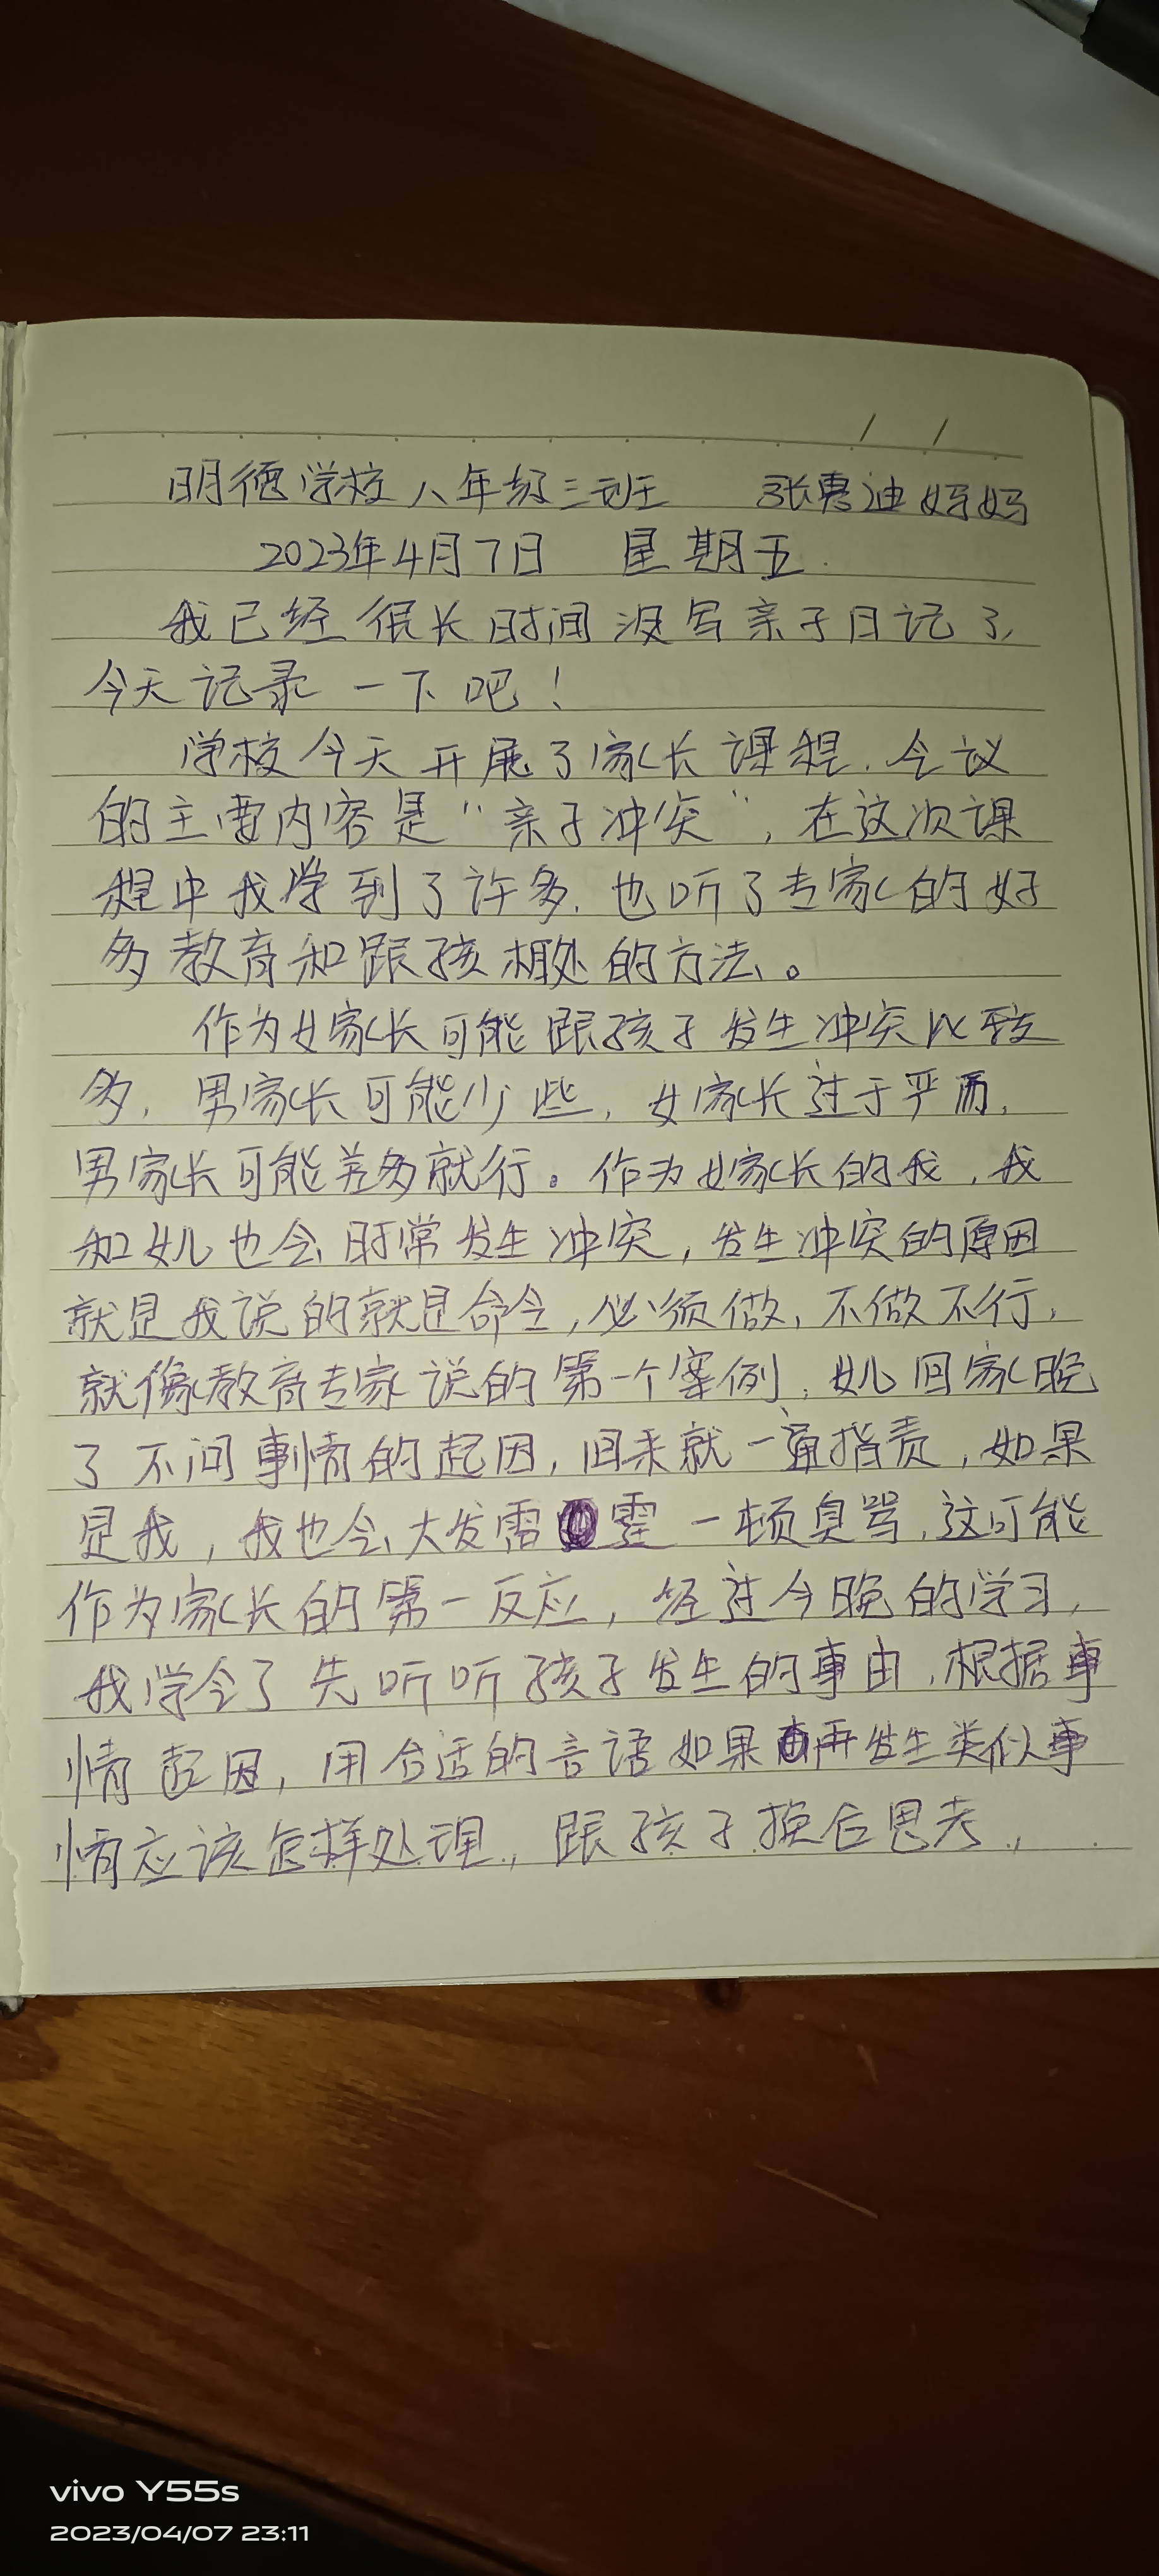 明德学校八年级三班 张惠迪妈妈
2023年4月7日 星期五.
我已经很长时间没写亲子日记了,
今天记录一下吧！
学校今天开展了家长课程.会议
的主要内容是“亲子冲突”,在这次课
程中我学到了许多.也听了专家的好
多教育和跟孩相处的方法。
作为女家长可能跟孩子发生冲突比较
多.男家长可能少些,女家长过于严肃,
男家长可能差多就行。作为女家长的我,我
和女儿也会时常发生冲突,发生冲突的原因
就是我说的就是命令,必须做,不做不行,
就像教育专家说的第一个案例,女儿回家晚
了不问事情的起因,回来就一通指责,如果
是我,我也会大发雷霆一顿臭骂,这可能
作为家长的第一反应,经过今晚的学习,
我学会了先听听孩子发生的事由,根据事
情起因,用合适的言语如果再发生类似事
情应该怎样处理,跟孩子换后思考,
vivo Y55s
2023/04/07 23:11